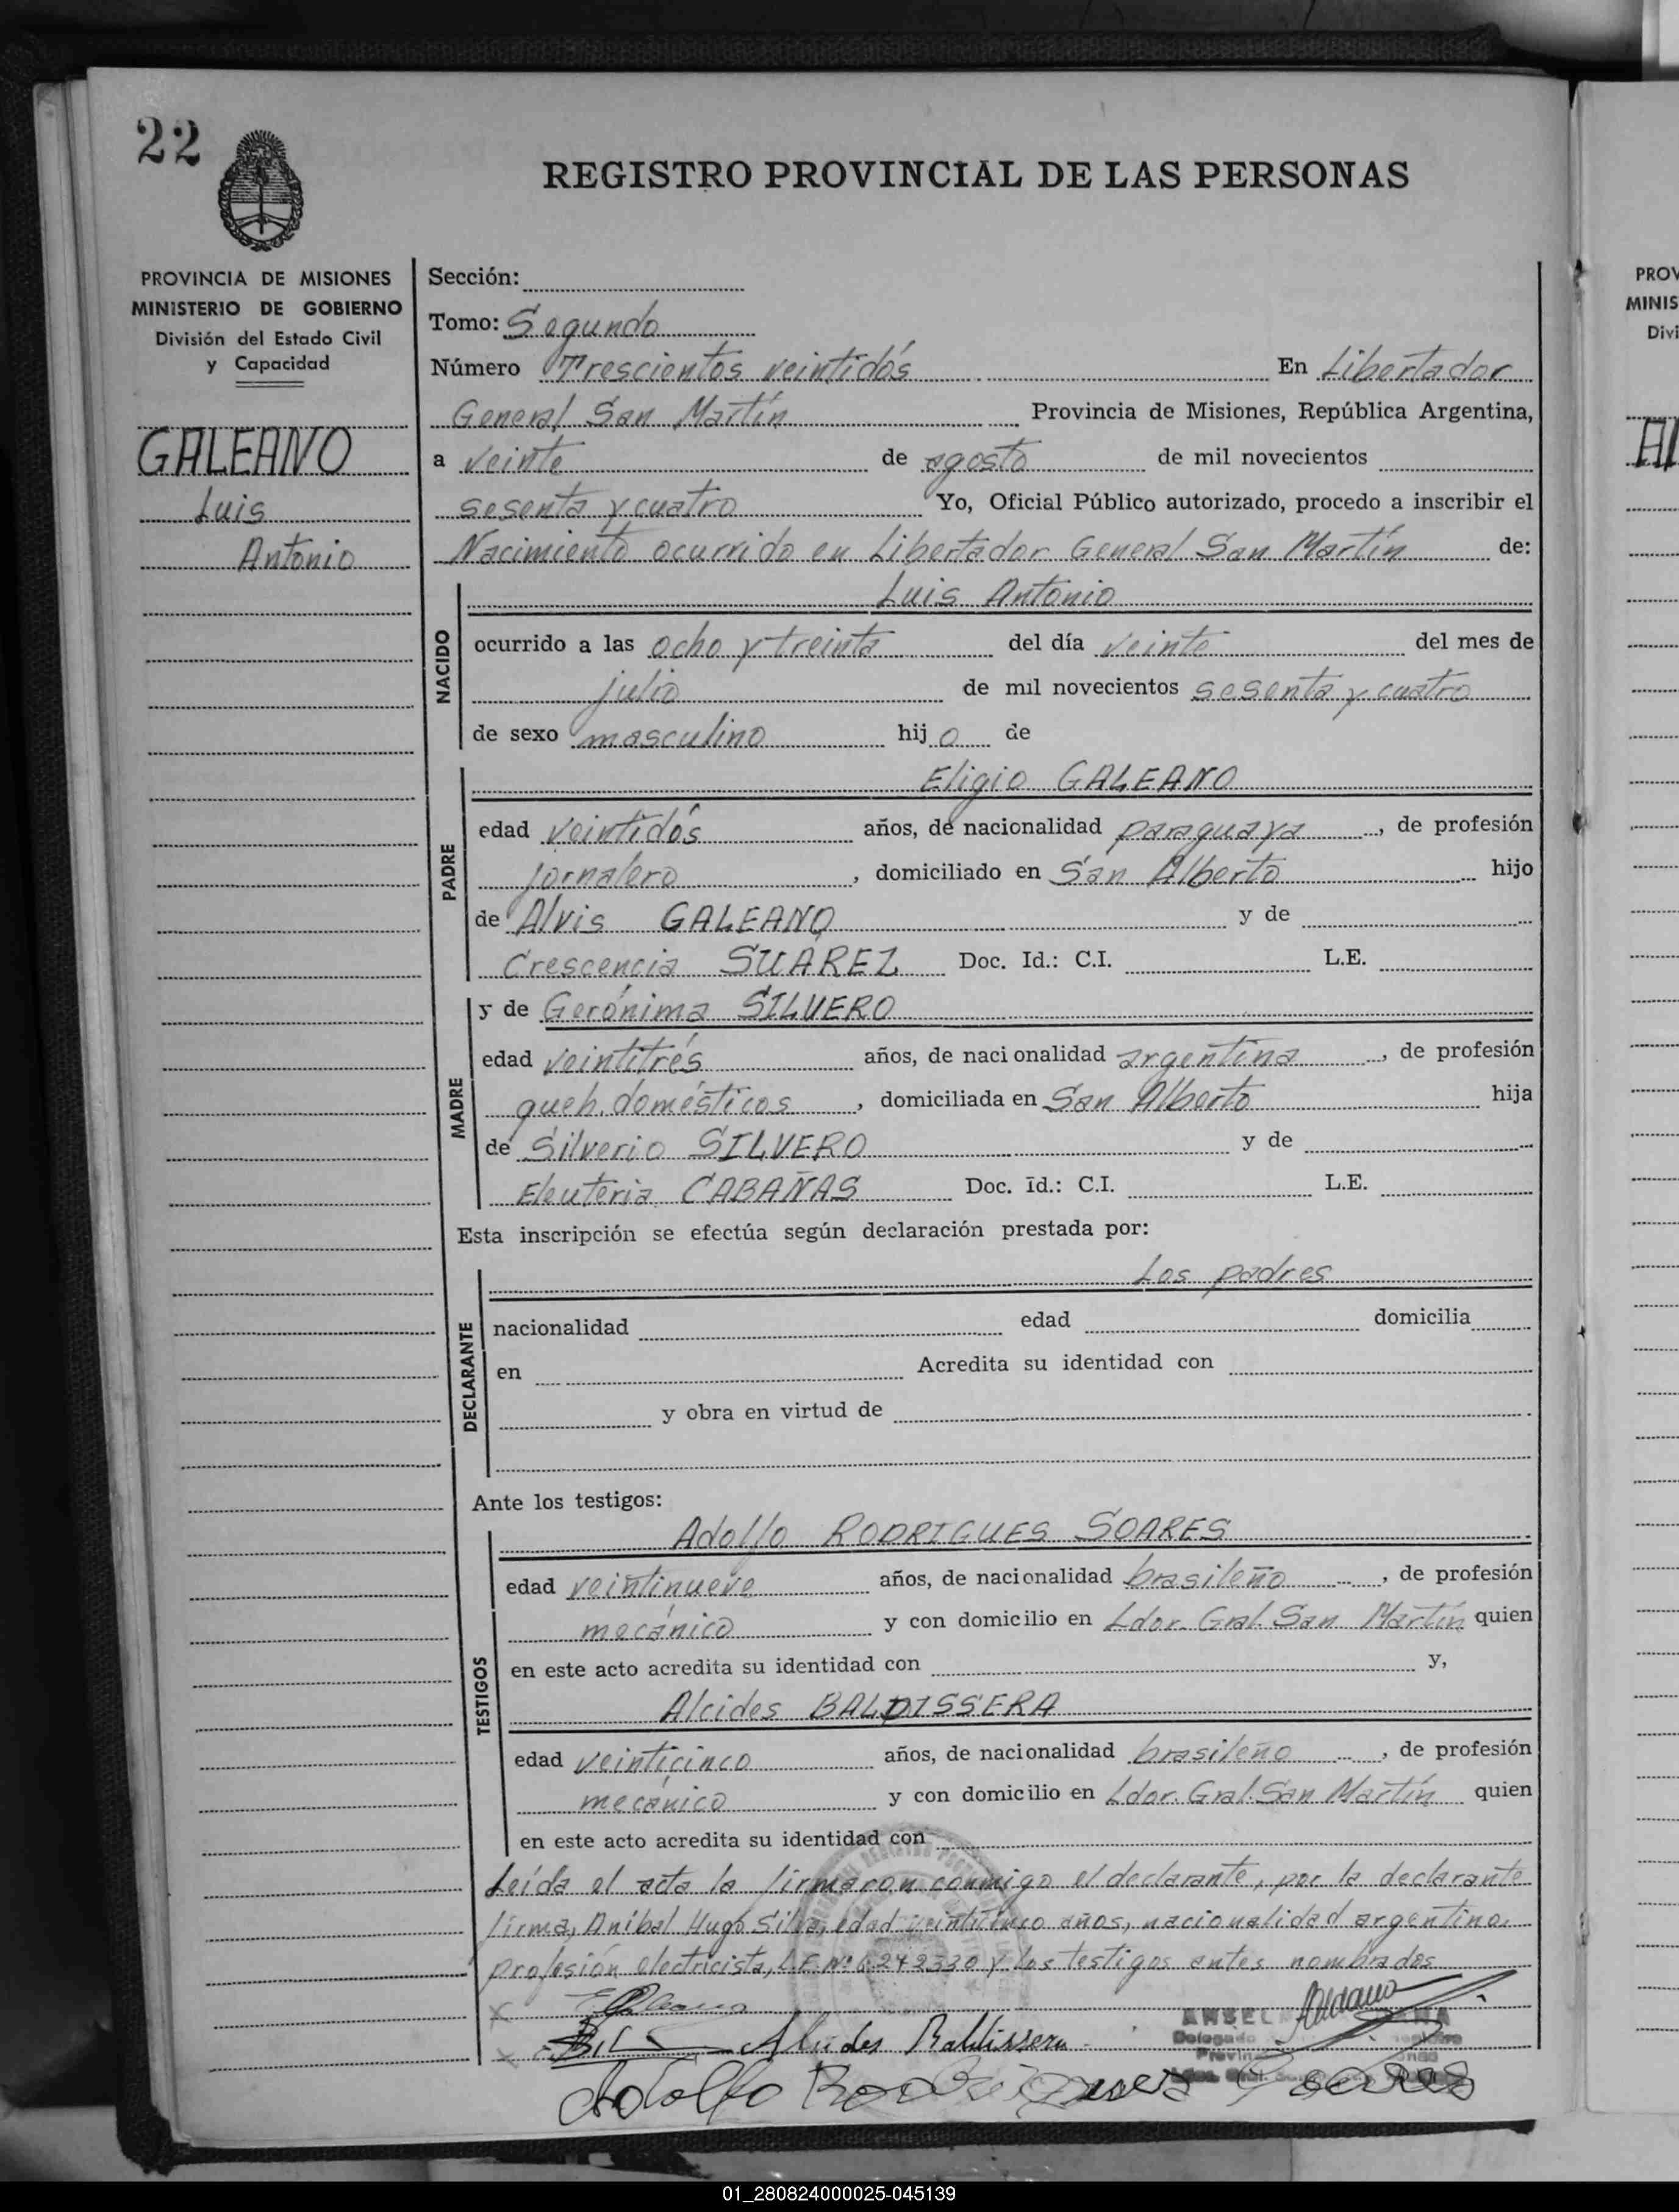 22
REGISTRO PROVINCIAL DE LAS PERSONAS
PROVINCIA DE MISIONES
MINISTERIO DE GOBIERNO
División del Estado Civil
y Capacidad
GALEANO
Luis
Antonio
Sección:
Tomo: Segundo
Número Trescientos veintidós En Libertador
General San Martín Provincia de Misiones, República Argentina,
a veinte de agosto de mil novecientos
sesenta y cuatro Yo, Oficial Público autorizado, procedo a inscribir el
Nacimiento ocurrido en Libertador General San Martín de:
NACIDO
Luis Antonio
ocurrido a las ocho y treinta del día veinte del mes de
julio de mil novecientos sesenta y cuatro
de sexo masculino hijo de
PADRE
Eligio GALEANO
edad veintidós años, de nacionalidad paraguaya, de profesión
jornalero, domiciliado en San Alberto hijo
de Alvis GALEANO y de
Crescencia SUÁREZ Doc. Id.: C.I. L.E.
MADRE
y de Gerónima SILVERO
edad veintitrés años, de nacionalidad argentina, de profesión
queh. domésticos, domiciliada en San Alberto hija
de Silverio SILVERO y de
Eleuteria CABAÑAS Doc. Id.: C.I. L.E.
Esta inscripción se efectúa según declaración prestada por:
DECLARANTE
Los padres
nacionalidad edad domicilia
en Acredita su identidad con
y obra en virtud de
Ante los testigos:
TESTIGOS
Adolfo RODRIGUES SOARES
edad veintinueve años, de nacionalidad brasileño, de profesión
mecánico y con domicilio en Ldor. Gral. San Martín quien
en este acto acredita su identidad con y,
Alcides BALDISSERA
edad veinticinco años, de nacionalidad brasileño, de profesión
mecánico y con domicilio en Ldor. Gral. San Martín quien
en este acto acredita su identidad con
Leída el acta la firmaron conmigo el declarante, por la declarante
firma, Aníbal Hugo Silva, edad años, nacionalidad argentino,
profesión electricista, L.E. Nº 6.242330 y los testigos antes nombrados
Alcides Baldissera
ANSEL
Delegado
Adolfo Rodrigues Soares
PROV
MINIS
Divi
01_280824000025-045139